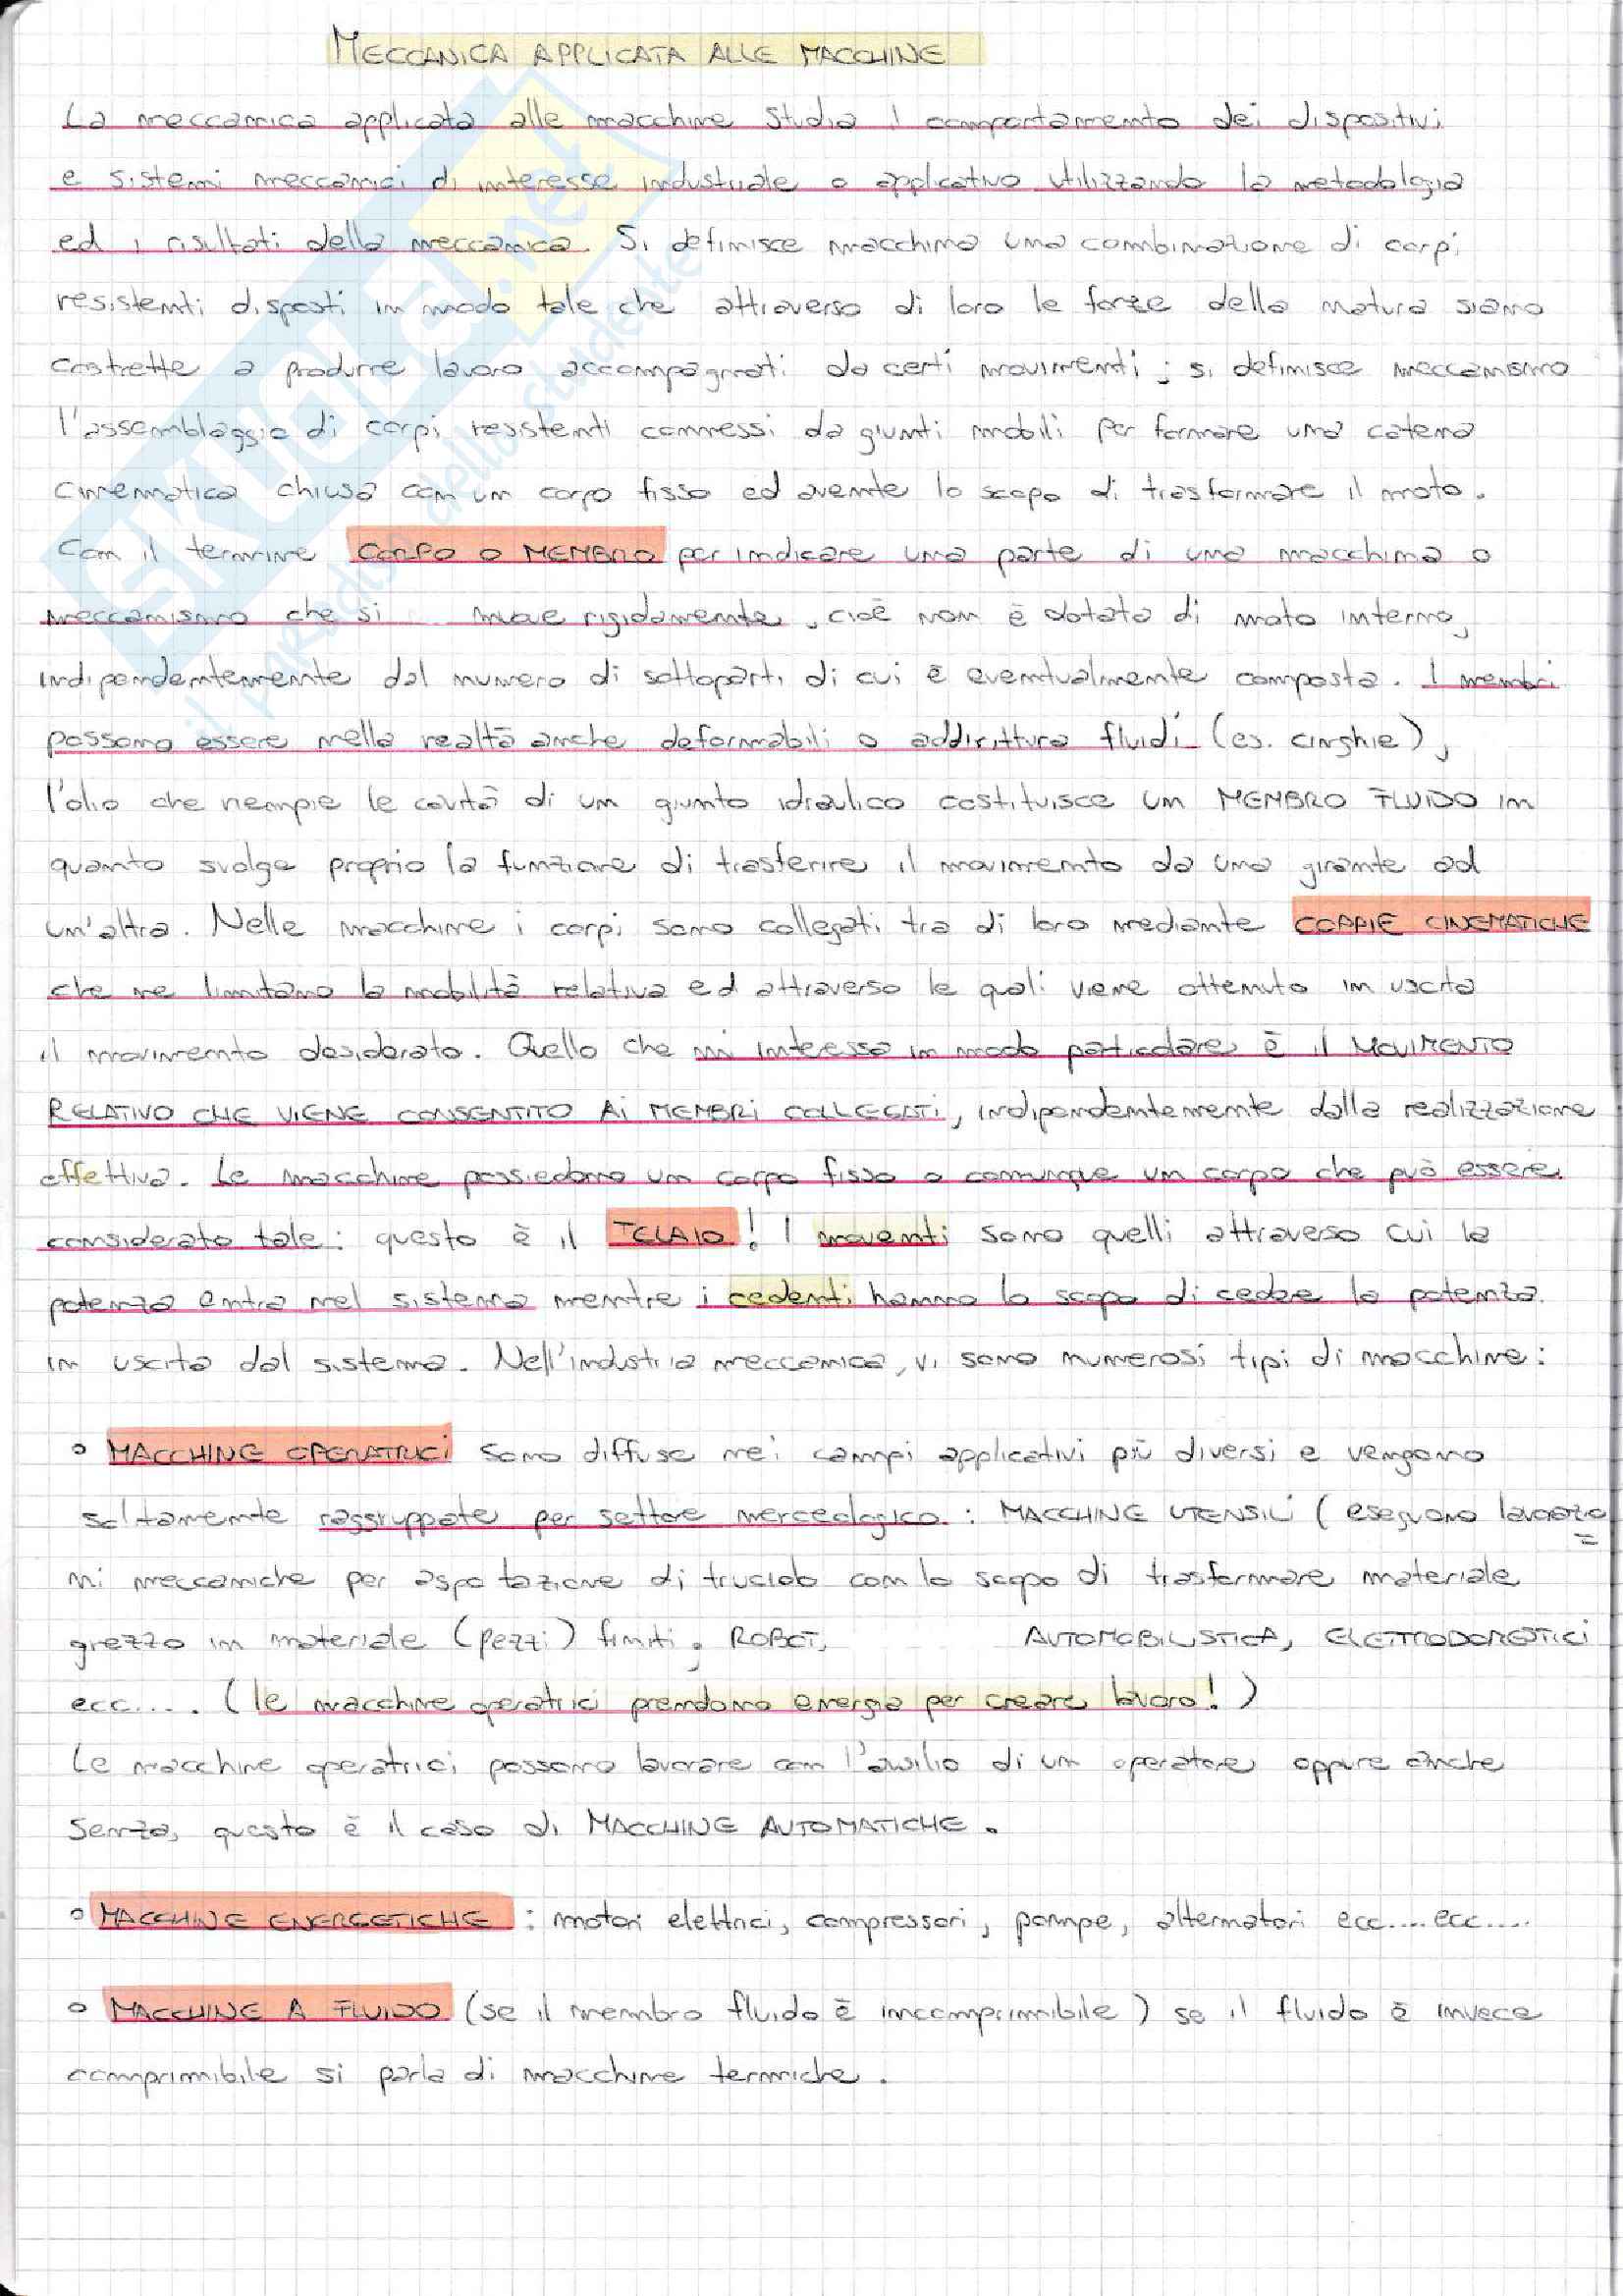 MECCANICA APPLICATA ALLE MACCHINE
La meccanica applicata alle macchine studia i comportamento dei dispositivi
e sistemi meccanici di interesse industriale o applicativo utilizzando la metodologia
ed i risultati della meccanica. Si definisce macchina una combinazione di corpi
resistenti disposti in modo tale che attraverso di loro le forze della natura siano
costrette a produrre lavoro accompagnati da certi movimenti; si definisce meccanismo
l'assemblaggio di corpi resistenti connessi da giunti mobili per formare una catena
cinematica chiusa con un corpo fisso ed avente lo scopo di trasformare il moto.
Con il termine CORPO O MEMBRO per indicare una parte di una macchina o
meccanismo che si muove rigidamente, cioè non è dotata di moto interno,
indipendentemente dal numero di sottoparti di cui è eventualmente composta. I membri
possono essere nella realtà anche deformabili o addirittura fluidi (es. cinghie),
l'olio che riempie le cavità di un giunto idraulico costituisce un MEMBRO FLUIDO in
quanto svolge proprio la funzione di trasferire il movimento da una girante ad
un'altra. Nelle macchine i corpi sono collegati tra di loro mediante COPPIE CINEMATICHE
che ne limitano la mobilità relativa ed attraverso le quali viene ottenuto in uscita
il movimento desiderato. Quello che mi interessa in modo particolare è il MOVIMENTO
RELATIVO CHE VIENE CONSENTITO AI MEMBRI COLLEGATI, indipendentemente dalla realizzazione
effettiva. Le macchine possiedono un corpo fisso o comunque un corpo che può essere
considerato tale: questo è il TELAIO! I moventi sono quelli attraverso cui la
potenza entra nel sistema mentre i cedenti hanno lo scopo di cedere la potenza
in uscita dal sistema. Nell'industria meccanica, vi sono numerosi tipi di macchine:
° MACCHINE OPERATRICI sono diffuse nei campi applicativi più diversi e vengono
solitamente raggruppate per settore merceologico.: MACCHINE UTENSILI (eseguono lavorazio
ni meccaniche per asportazione di truciolo con lo scopo di trasformare materiale
grezzo in materiale (pezzi) finiti; ROBOT, AUTOMOBILISTICA, ELETTRODOMESTICI
ecc..... (le macchine operatrici prendono energia per creare lavoro!)
Le macchine operatrici possono lavorare con l'ausilio di un operatore oppure anche
senza, questo è il caso di MACCHINE AUTOMATICHE.
° MACCHINE ENERGETICHE : motori elettrici, compressori, pompe, alternatori ecc....ecc....
° MACCHINE A FLUIDO (se il membro fluido è incomprimibile) se il fluido è invece
comprimibile si parla di macchine termiche.
SKUOLA.net
il paradiso dello studente